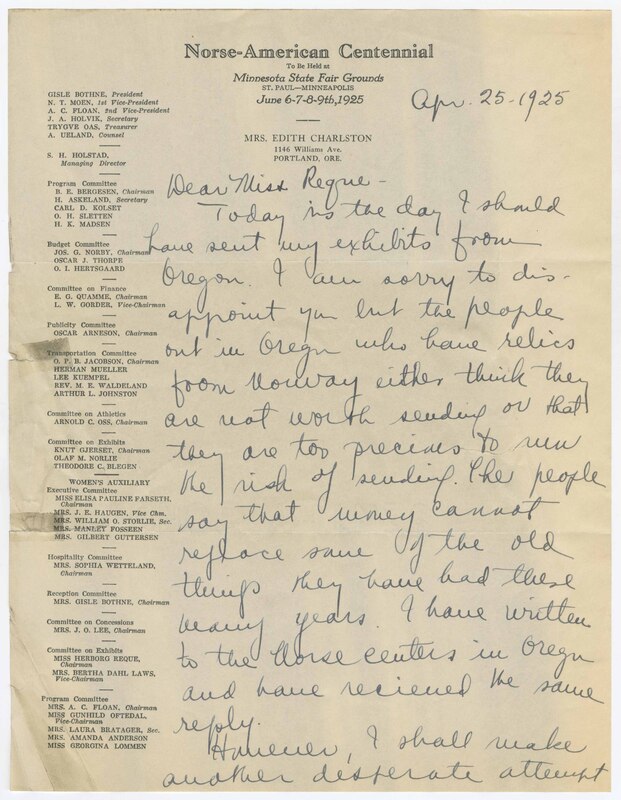 Norse-American Centennial
To Be Held at
Minnesota State Fair Grounds
ST. PAUL—MINNEAPOLIS
June 6-7-8-9th, 1925
Apr. 25-1925
MRS. EDITH CHARLSTON
1146 Williams Ave.
PORTLAND, ORE.
GISLE BOTHNE, President
N. T. MOEN, 1st Vice-President
A. C. FLOAN, 2nd Vice-President
J. A. HOLVIK, Secretary
TRYGVE OAS, Treasurer
A. UELAND, Counsel
S. H. HOLSTAD,
Managing Director
Program Committee
B. E. BERGESEN, Chairman
H. ASKELAND, Secretary
CARL D. KOLSET
O. H. SLETTEN
H. K. MADSEN
Budget Committee
JOS. G. NORBY, Chairman
OSCAR J. THORPE
O. I. HERTSGAARD
Committee on Finance
E. G. QUAMME, Chairman
L. W. GORDER, Vice-Chairman
Publicity Committee
OSCAR ARNESON, Chairman
Transportation Committee
O. P. B. JACOBSON, Chairman
HERMAN MUELLER
LEE KUEMPEL
REV. M. E. WALDELAND
ARTHUR L. JOHNSTON
Committee on Athletics
ARNOLD C. OSS, Chairman
Committee on Exhibits
KNUT GJERSET, Chairman
OLAF M. NORLIE
THEODORE C. BLEGEN
WOMEN'S AUXILIARY
Executive Committee
MISS ELISA PAULINE FARSETH,
Chairman
MRS. J. E. HAUGEN, Vice Chm.
MRS. WILLIAM O. STORLIE, Sec.
MRS. MANLEY FOSSEEN
MRS. GILBERT GUTTERSEN
Hospitality Committee
MRS. SOPHIA WETTELAND,
Chairman
Reception Committee
MRS. GISLE BOTHNE, Chairman
Committee on Concessions
MRS. J. O. LEE, Chairman
Committee on Exhibits
MISS HERBORG REQUE,
Chairman
MRS. BERTHA DAHL LAWS,
Vice-Chairman
Program Committee
MRS. A. C. FLOAN, Chairman
MISS GUNHILD OFTEDAL,
Vice-Chairman
MRS. LAURA BRATAGER, Sec.
MRS. AMANDA ANDERSON
MISS GEORGINA LOMMEN
Dear Miss Reque-
Today is the day I should
have sent my exhibits from
Oregon. I am sorry to dis-
appoint you but the people
out in Oregon who have relics
from Norway either think they
are not worth sending or that
they are too precious to run
the risk of sending. The people
say that money cannot
replace some of the old
things they have had these
many years. I have written
to the Norse centers in Oregon
and have recieved the same
reply.
However, I shall make
another desperate attempt